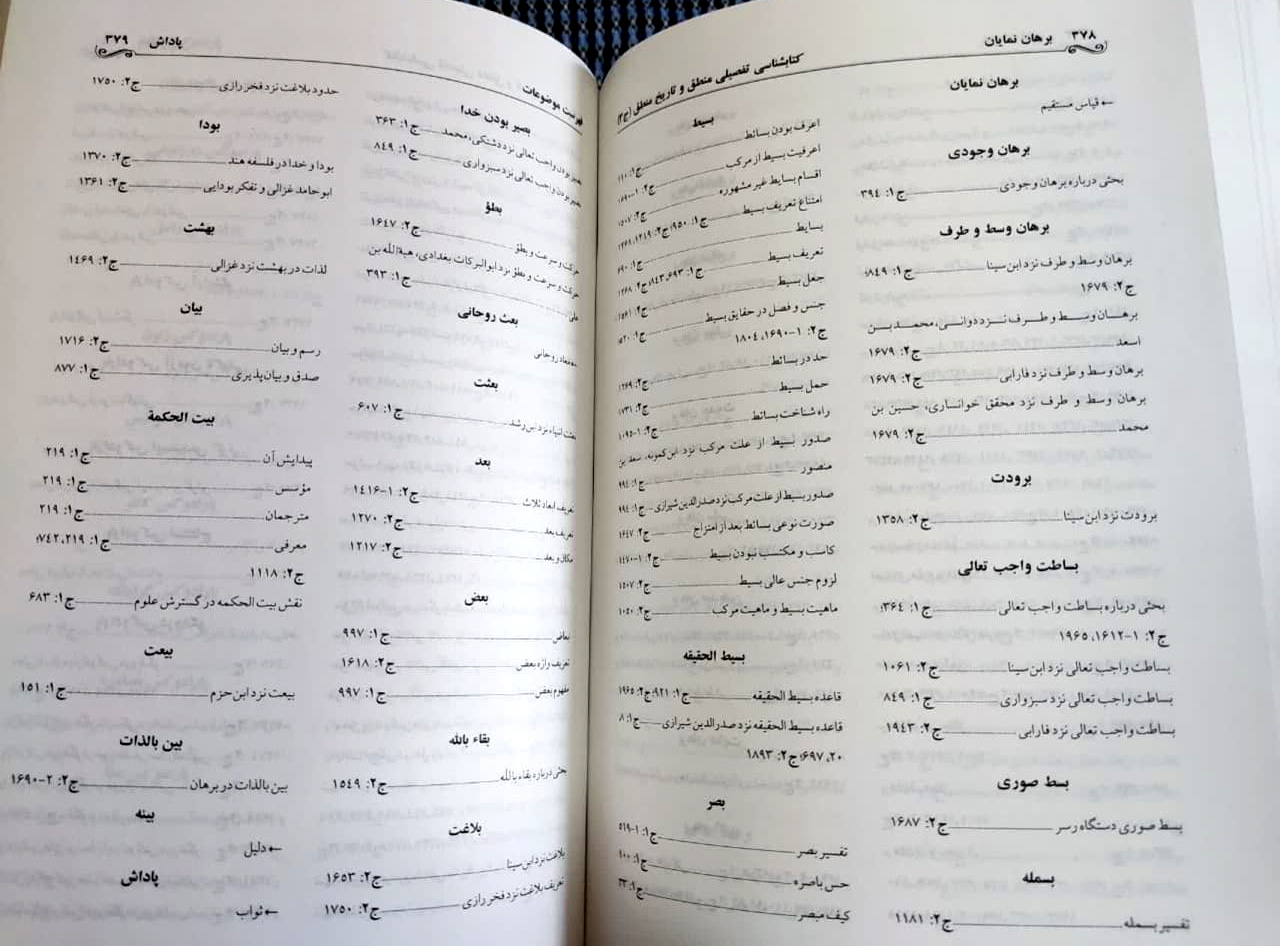 ۳۷۸ برهان نمایان
کتابشناسی تفصیلی منطق و تاریخ منطق (ج۲)
برهان نمایان
← قیاس مستقیم
برهان وجودی
بحثی درباره برهان وجودی ج۱: ۳۹۴
برهان وسط و طرف
برهان وسط و طرف نزد ابن سینا ج۱: ۸۴۹؛
ج۲: ۱۶۷۹
برهان وسط و طرف نزد دوانی، محمد بن
اسعد ج۲: ۱۶۷۹
برهان وسط و طرف نزد فارابی ج۲: ۱۶۷۹
برهان وسط و طرف نزد محقق خوانساری، حسین بن
محمد ج۲: ۱۶۷۹
برودت
برودت نزد ابن سینا ج۲: ۱۳۵۸
بساطت واجب تعالی
بحثی درباره بساطت واجب تعالی ج۱: ۳۶۴؛
ج۲: ۱-۱۶۱۲، ۱۹۶۵
بساطت واجب تعالی نزد ابن سینا ج۲: ۱۰۶۱
بساطت واجب تعالی نزد سبزواری ج۱: ۸۴۹
بساطت واجب تعالی نزد فارابی ج۲: ۱۹۴۳
بسط صوری
بسط صوری دستگاه رسر ج۲: ۱۶۸۷
بسمله
تفسیر بسمله ج۲: ۱۱۸۱
بسیط
اعرف بودن بسائط
اعرفیت بسیط از مرکب
اقسام بسایط غیر مشهوره ج۲: ۱۵۰۷
امتناع تعریف بسیط ج۱: ۹۵۰؛ ج۲: ۱۲۱۹،
بسایط
تعریف بسیط ج۱: ۶۹۳،
جعل بسیط ج۲: ۱۵۶۱
جنس و فصل در حقایق بسیط
ج۲: ۱-۱۶۹۰، ۱۸۰۴
حد در بسائط ج۲: ۱۲۶۹
حمل بسیط ج۲: ۱۷۳۱
راه شناخت بسائط ج۲: ۱-۱۰۹۵
صدور بسیط از علت مرکب نزد ابن کمونه، سعد بن
منصور ج۱: ۹۹۴
صدور بسیط از علت مرکب نزد صدرالدین شیرازی ج۱: ۹۹۴
صورت نوعی بسائط بعد از امتزاج ج۲: ۱۶۴۷
کاسب و مکتسب نبودن بسیط ج۲: ۱-۱۴۷۰
لزوم جنس عالی بسیط ج۲: ۱۵۰۷
ماهیت بسیط و ماهیت مرکب ج۲: ۱۰۵۰
بسیط الحقیقه
قاعده بسیط الحقیقه ج۱: ۹۲۱؛ ج۲: ۱۹۶۵
قاعده بسیط الحقیقه نزد صدرالدین شیرازی ج۱: ۸،
۲۰، ۶۹۷؛ ج۲: ۱۸۹۳
بصر
تفسیر بصر ج۱: ۱-۵۱۹
حس باصره ج۱:
کیف مبصر ج۱:
پاداش ۳۷۹
فهرست موضوعات
بصیر بودن خدا
بصیر بودن واجب تعالی نزد دشتکی، محمد ج۱: ۳۶۳
بصیر بودن واجب تعالی نزد سبزواری ج۱: ۸۴۹
بطؤ
حرکت و سرعت و بطؤ ج۲: ۱۶۴۷
حرکت و سرعت و بطؤ نزد ابوالبرکات بغدادی، هبة الله بن
علی ج۱: ۳۹۳
بعث روحانی
← معاد روحانی
بعثت
بعثت انبیاء نزد ابن رشد ج۱: ۶۰۷
بعد
تعریف ابعاد ثلاث ج۲: ۱-۱۴۱۶
تعریف بعد ج۲: ۱۲۷۰
مکان و بعد ج۲: ۱۲۱۷
بعض
تعریف واژه بعض ج۲: ۱۶۱۸
مفهوم بعض ج۱: ۹۹۷
بقاء بالله
بحثی درباره بقاء بالله ج۲: ۱۵۴۹
بلاغت
بلاغت نزد ابن سینا ج۲: ۱۶۵۳
تعریف بلاغت نزد فخر رازی ج۲: ۱۷۵۰
حدود بلاغت نزد فخر رازی ج۲: ۱۷۵۰
بودا
بودا و خدا در فلسفه هند ج۲: ۱۳۷۰
ابوحامد غزالی و تفکر بودایی ج۲: ۱۳۶۱
بهشت
لذات در بهشت نزد غزالی ج۲: ۱۴۶۹
بیان
رسم و بیان ج۲: ۱۷۱۶
صدق و بیان پذیری ج۱: ۸۷۷
بیت الحکمة
پیدایش آن ج۱: ۲۱۹
مؤسس ج۱: ۲۱۹
مترجمان ج۱: ۲۱۹
معرفی ج۱: ۲۱۹، ۷۴۲؛
ج۲: ۱۱۱۸
نقش بیت الحکمه در گسترش علوم ج۱: ۶۸۳
بیعت
بیعت نزد ابن حزم ج۱: ۱۵۱
بین بالذات
بین بالذات در برهان ج۲: ۲-۱۶۹۰
بینه
← دلیل
پاداش
← ثواب